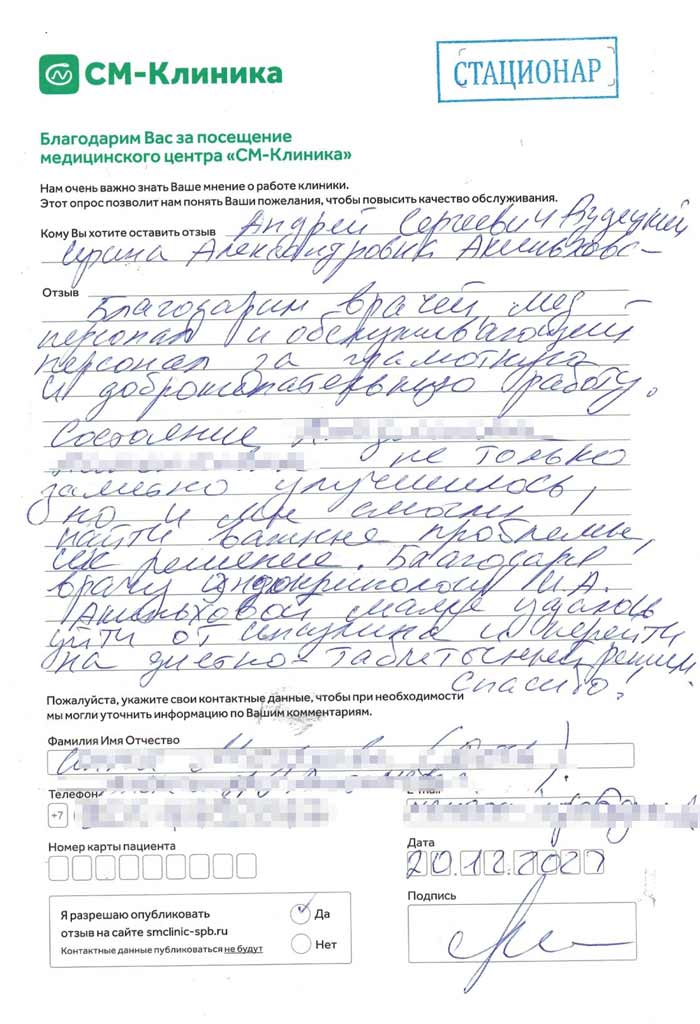 СМ-Клиника
СТАЦИОНАР
Благодарим Вас за посещение
медицинского центра «СМ-Клиника»
Нам очень важно знать Ваше мнение о работе клиники.
Этот опрос позволит нам понять Ваши пожелания, чтобы повысить качество обслуживания.
Кому Вы хотите оставить отзыв Андрей Сергеевич
Ирина Александровна
Отзыв
Благодарим врачей мед
персонал и обслуживающий
персонал за грамотную
и доброжелательную работу.
Состояние
не только
заметно улучшилось,
но и мы смогли
найти важные проблемы,
их решение. Благодаря
врачу эндокринологу И.А.
Акиньховой маме удалось
уйти от инсулина и перейти
на диетно-таблетычный режим
Спасибо!
Пожалуйста, укажите свои контактные данные, чтобы при необходимости
мы могли уточнить информацию по Вашим комментариям.
Фамилия Имя Отчество
Телефон
E-mail
+7
Номер карты пациента
Дата
20.12.2022
Я разрешаю опубликовать
отзыв на сайте smclinic-spb.ru
Контактные данные публиковаться не будут
Да
Нет
Подпись